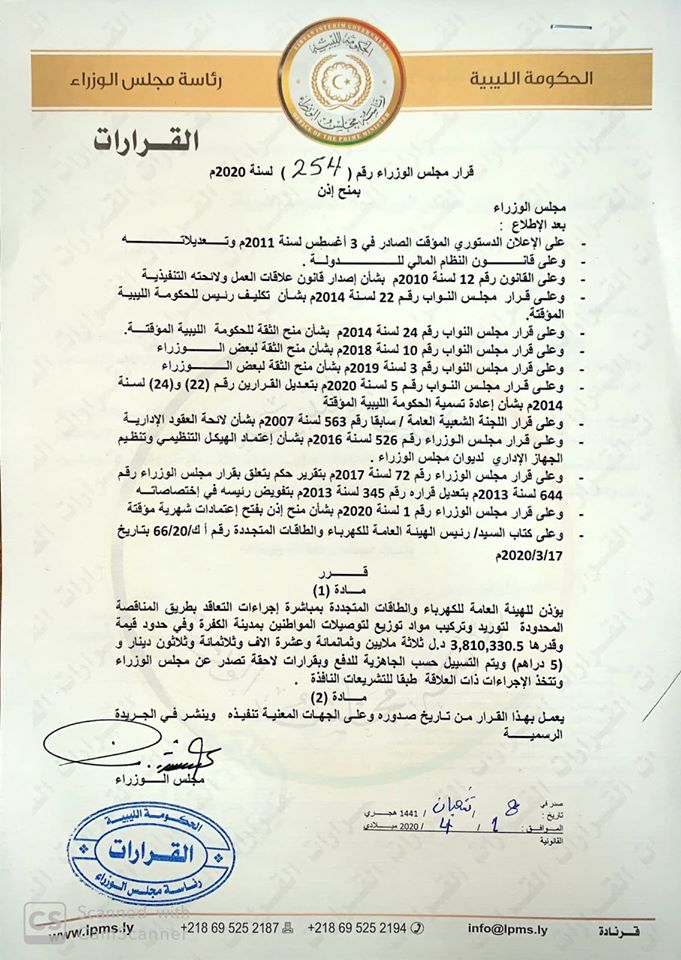 الحكومة الليبية
رئاسة مجلس الوزراء
LIBYAN INTERIM GOVERNMENT
الحكومة الليبية
رئاسة مجلس الوزراء
OFFICE OF THE PRIME MINISTER
القـرارات
قرار مجلس الوزراء رقم ( 254 ) لسنة 2020م
بمنح إذن
مجلس الوزراء
بعد الإطلاع :
- على الإعلان الدستوري المؤقت الصادر في 3 أغسطس لسنة 2011م وتعديلاته
- وعلى قانون النظام المالي للدولة .
- وعلى القانون رقم 12 لسنة 2010م بشأن إصدار قانون علاقات العمل ولائحته التنفيذية
- وعلى قرار مجلس النواب رقم 22 لسنة 2014م بشأن تكليف رئيس للحكومة الليبية
المؤقتة.
- وعلى قرار مجلس النواب رقم 24 لسنة 2014م بشأن منح الثقة للحكومة الليبية المؤقتة.
- وعلى قرار مجلس النواب رقم 10 لسنة 2018م بشأن منح الثقة لبعض الوزراء
- وعلى قرار مجلس النواب رقم 3 لسنة 2019م بشأن منح الثقة لبعض الوزراء
- وعلى قرار مجلس النواب رقم 5 لسنة 2020م بتعديل القرارين رقم (22) و(24) لسنة
2014م بشأن إعادة تسمية الحكومة الليبية المؤقتة
- وعلى قرار اللجنة الشعبية العامة / سابقا رقم 563 لسنة 2007م بشأن لائحة العقود الإدارية
- وعلى قرار مجلس الوزراء رقم 526 لسنة 2016م بشأن إعتماد الهيكل التنظيمي وتنظيم
الجهاز الإداري لديوان مجلس الوزراء .
- وعلى قرار مجلس الوزراء رقم 72 لسنة 2017م بتقرير حكم يتعلق بقرار مجلس الوزراء رقم
644 لسنة 2013م بتعديل قراره رقم 345 لسنة 2013م بتفويض رئيسه في إختصاصاته
- وعلى قرار مجلس الوزراء رقم 1 لسنة 2020م بشأن منح إذن بفتح إعتمادات شهرية مؤقتة
- وعلى كتاب السيد/ رئيس الهيئة العامة للكهرباء والطاقات المتجددة رقم أ ك/66/20 بتاريخ
2020/3/17م
قـرر
مـادة (1)
يؤذن للهيئة العامة للكهرباء والطاقات المتجددة بمباشرة إجراءات التعاقد بطريق المناقصة
المحدودة لتوريد وتركيب مواد توزيع لتوصيلات المواطنين بمدينة الكفرة وفي حدود قيمة
وقدرها 3,810,330.5 د.ل ثلاثة ملايين وثمانمائة وعشرة الاف وثلاثمائة وثلاثون دينار و
(5 دراهم) ويتم التسييل حسب الجاهزية للدفع وبقرارات لاحقة تصدر عن مجلس الوزراء
وتتخذ الإجراءات ذات العلاقة طبقا للتشريعات النافذة .
مـادة (2)
يعمل بهذا القرار من تاريخ صدوره وعلى الجهات المعنية تنفيذه وينشر في الجريدة
الرسمية
مجلس الوزراء
الحكومة الليبية
القرارات
رئاسة مجلس الوزراء
صدر في
تاريخ : 8 / شعبان / 1441 هجري
الموافق : 1 / 4 / 2020 ميلادي
القانونية
CS Scanned with
CamScanner
www.lpms.ly
+218 69 525 2187
+218 69 525 2194
info@lpms.ly
قرنادة